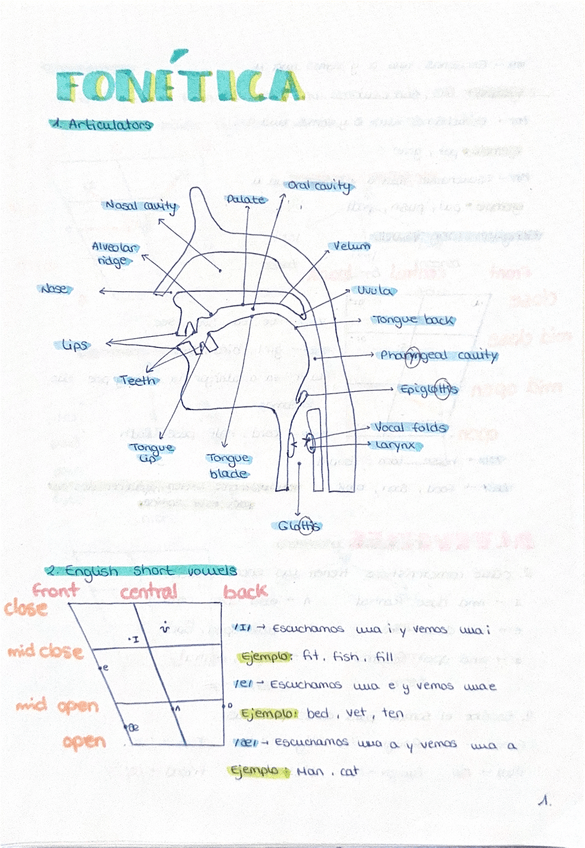 FONÉTICA
1. Articulators
Oral cavity
Nasal cavity
Palate
Alveolar
ridge
Velum
Nose
Uvula
Tongue back
Lips
Pharyngeal cavity
Teeth
Epiglottis
Vocal folds
Larynx
Tongue
tip
Tongue
blade
Glottis
2. English short vowels
front central back
close
mid close
mid open
open
I
e
æ
ʌ
/I/ → Escuchamos una i y vemos una i
Ejemplo: fit, fish, fill
/e/ → Escuchamos una e y vemos una e
Ejemplo: bed, vet, ten
/æ/ → Escuchamos una a y vemos una a
Ejemplo: Man, cat
1.